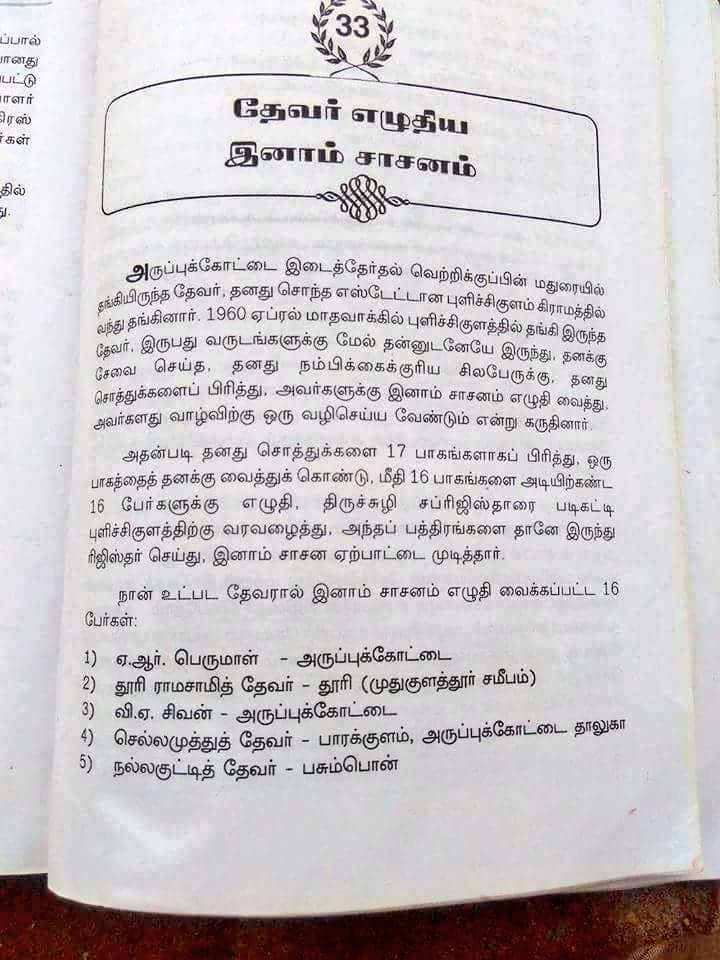 ப்பால்
பானது
பட்டு
பாளர்
கிரஸ்
ர்கள்
தில்
து.
33
தேவர் எழுதிய
இனாம் சாசனம்
அருப்புக்கோட்டை இடைத்தேர்தல் வெற்றிக்குப்பின் மதுரையில்
தங்கியிருந்த தேவர், தனது சொந்த எஸ்டேட்டான புளிச்சிகுளம் கிராமத்தில்
வந்து தங்கினார். 1960 ஏப்ரல் மாதவாக்கில் புளிச்சிகுளத்தில் தங்கி இருந்த
தேவர், இருபது வருடங்களுக்கு மேல் தன்னுடனேயே இருந்து, தனக்கு
சேவை செய்த, தனது நம்பிக்கைக்குரிய சிலபேருக்கு, தனது
சொத்துக்களைப் பிரித்து, அவர்களுக்கு இனாம் சாசனம் எழுதி வைத்து,
அவர்களது வாழ்விற்கு ஒரு வழிசெய்ய வேண்டும் என்று கருதினார்.
அதன்படி தனது சொத்துக்களை 17 பாகங்களாகப் பிரித்து, ஒரு
பாகத்தைத் தனக்கு வைத்துக் கொண்டு, மீதி 16 பாகங்களை அடியிற்கண்ட
16 பேர்களுக்கு எழுதி, திருச்சுழி சப்ரிஜிஸ்தாரை படிகட்டி
புளிச்சிகுளத்திற்கு வரவழைத்து, அந்தப் பத்திரங்களை தானே இருந்து
ரிஜிஸ்தர் செய்து, இனாம் சாசன ஏற்பாட்டை முடித்தார்.
நான் உட்பட தேவரால் இனாம் சாசனம் எழுதி வைக்கப்பட்ட 16
பேர்கள்:
1) ஏ.ஆர். பெருமாள் - அருப்புக்கோட்டை
2) தூரி ராமசாமித் தேவர் - தூரி (முதுகுளத்தூர் சமீபம்)
3) வி.ஏ. சிவன் - அருப்புக்கோட்டை
4) செல்லமுத்துத் தேவர் - பாரக்குளம், அருப்புக்கோட்டை தாலுகா
5) நல்லகுட்டித் தேவர் - பசும்பொன்